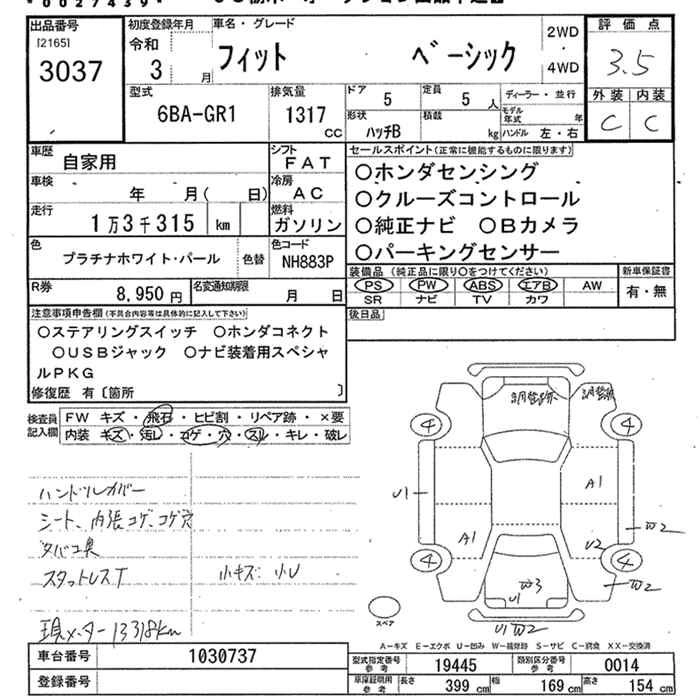 *0027439*
出品番号
[2165]
3037
初度登録年月
令和
3 月
車名・グレード
フィット ベーシック
2WD
・
4WD
評価点
3.5
外装 内装
C C
型式
6BA-GR1
排気量
1317
CC
ドア 5
定員 5 人
形状 ハッチB
積載 kg
ディーラー・並行
モデル年式 年
ハンドル 左・右
車歴 自家用
シフト FAT
車検 年 月( 日)
冷房 AC
走行 1万3千315 km
燃料 ガソリン
色 プラチナホワイト・パール 色替
色コード NH883P
R券 8,950円
名変通知期限 月 日
セールスポイント(正常に機能するものに限ります)
○ホンダセンシング
○クルーズコントロール
○純正ナビ ○Bカメラ
○パーキングセンサー
装備品(純正品に限り○をつけてください)
新車保証書
PS PW ABS エアB AW
有・無
SR ナビ TV カワ
後日品
注意事項申告欄(不具合内容等は具体的に記入して下さい)
○ステアリングスイッチ ○ホンダコネクト
○USBジャック ○ナビ装着用スペシャ
ルPKG
修復歴 有〔箇所 〕
検査員
記入欄
FW キズ・飛石・ヒビ割・リペア跡・×要
内装 キズ・汚レ・コゲ・穴・スレ・キレ・破レ
ハンドルカバー
シート、内張コゲ、コゲ穴
タバコ臭
スタットレスT 小キズ、小U
現メーター 13318km
調整跡
調整跡
4 4
A1
U1
W2
A1
U2
4 4
W3
W2
U1
U1 W2
スペア
A-キズ E-エクボ U-凹み W-補修跡 S-サビ C-腐食 XX-交換済
車台番号 1030737
登録番号
型式指定番号
参考
19445
類別区分番号
参考
0014
車庫証明用
参考
長さ 399 cm
幅 169 cm
高さ 154 cm